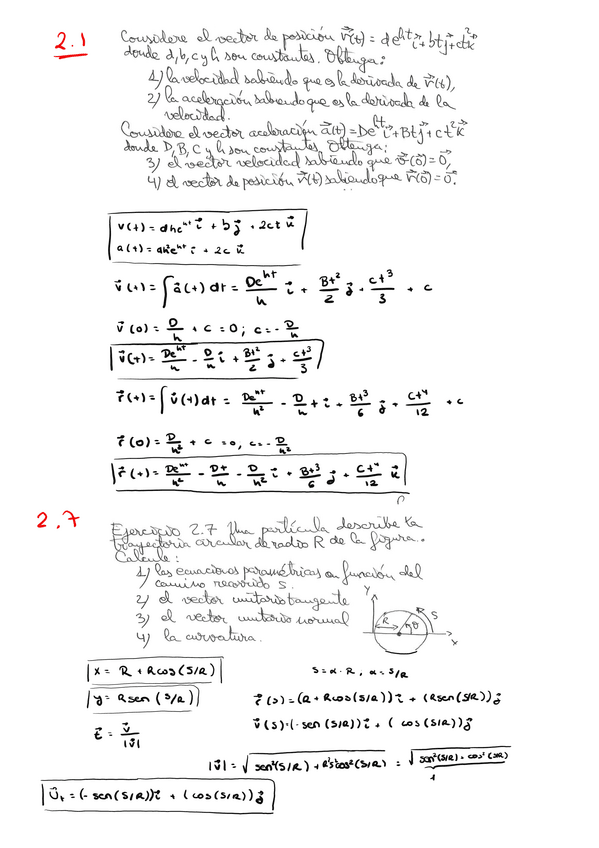 2.1
Considere el vector de posición r⃗(t) = de^{ht} i⃗ + bt j⃗ + ct² k⃗
donde d, b, c y h son constantes. Obtenga:
1) la velocidad sabiendo que es la derivada de r⃗(t),
2) la aceleración sabiendo que es la derivada de la
velocidad.
Considere el vector aceleración a⃗(t) = De^{ht} i⃗ + Bt j⃗ + ct² k⃗
donde D, B, C y h son constantes. Obtenga:
3) el vector velocidad sabiendo que v⃗(0) = 0⃗,
4) el vector de posición r⃗(t) sabiendo que r⃗(0) = 0⃗.
v(t) = dhe^{ht} i⃗ + b j⃗ + 2ct k⃗
a(t) = dh²e^{ht} i + 2c k⃗
v⃗(t) = ∫ a⃗(t) dt = De^{ht}/h i⃗ + Bt²/2 j⃗ + ct³/3 + c
v⃗(0) = D/h + c = 0; c = -D/h
v⃗(t) = De^{ht}/h - D/h i⃗ + Bt²/2 j⃗ + ct³/3
r⃗(t) = ∫ v⃗(t) dt = De^{ht}/h² - D/h t i⃗ + Bt³/6 j⃗ + ct⁴/12 + c
r⃗(0) = D/h² + c = 0, c = -D/h²
r⃗(t) = De^{ht}/h² - Dt/h - D/h² i⃗ + Bt³/6 j⃗ + ct⁴/12 k⃗
2.7
Ejercicio 2.7 Una partícula describe la
trayectoria circular de radio R de la figura.
Calcule:
1) las ecuaciones paramétricas en función del
camino recorrido s.
2) el vector unitario tangente
3) el vector unitario normal
4) la curvatura.
Y
R
R
θ
S
x
x = R + Rcos(S/R)
S = α · R, α = S/R
y = Rsen(S/R)
r⃗(s) = (R + Rcos(S/R)) i⃗ + (Rsen(S/R)) j⃗
t⃗ = v⃗/|v⃗|
v⃗(s) = (-sen(S/R)) i⃗ + (cos(S/R)) j⃗
|v⃗| = √(sen²(S/R) + cos²(S/R)) = √(sen²(S/R) + cos²(S/R))
1
U⃗t = (-sen(S/R)) i⃗ + (cos(S/R)) j⃗